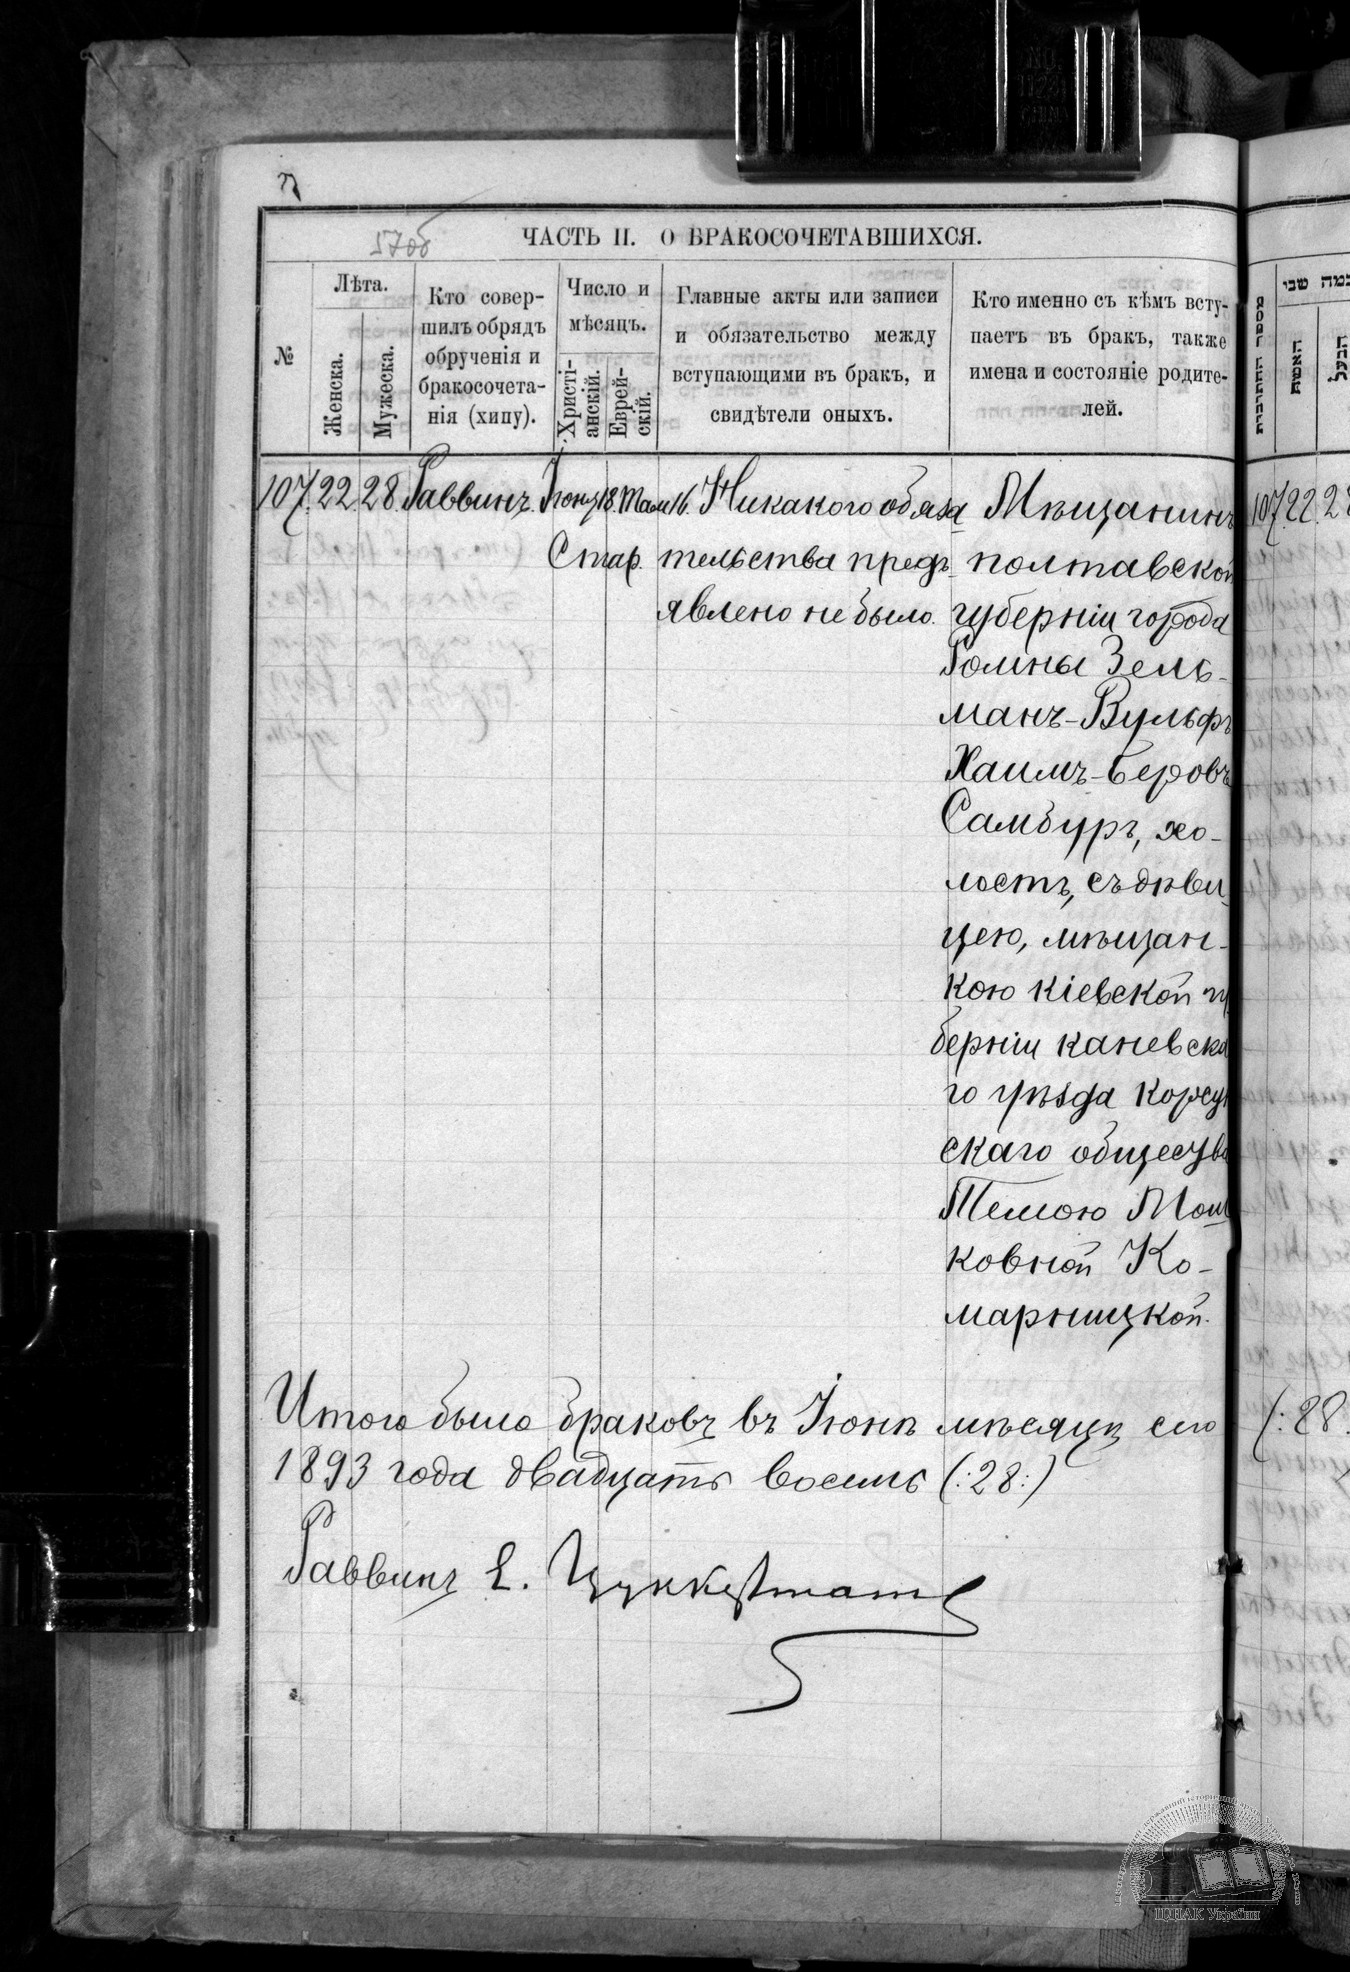 57об
ЧАСТЬ II. О БРАКОСОЧЕТАВШИХСЯ.
№
Лѣта.
Женска.
Мужеска.
Кто совер-
шилъ обрядъ
обрученія и
бракосочета-
нія (хипу).
Число и
мѣсяцъ.
Христі-
анскій.
Еврей-
скій.
Главные акты или записи
и обязательство между
вступающими въ бракъ, и
свидѣтели оныхъ.
Кто именно съ кѣмъ всту-
паетъ въ бракъ, также
имена и состояніе родите-
лей.
107. 22. 28. Раввинъ. Іюня 18. Там 16. Никакого обяза Мѣщанинъ
Стар. тельства предъ полтавской
явлено не было. губерніи города
Ромны Зель-
манъ-Вульфъ
Хаимъ-Беровъ
Самбуръ, хо-
лостъ, съ дѣви-
цею, мѣщан-
кою кіевской гу
берніи каневска
го уѣзда Корсун
скаго общества
Темою Мош
ковной Ко-
марницкой.
Итого было браковъ въ Іюнѣ мѣсяцѣ сего
1893 года двадцать восемь (:28:)
Раввинъ Е. Цуккерман
מספר החתונות
האשית
הבעל
107. 22. 28
(:28.
ЦДІАК України